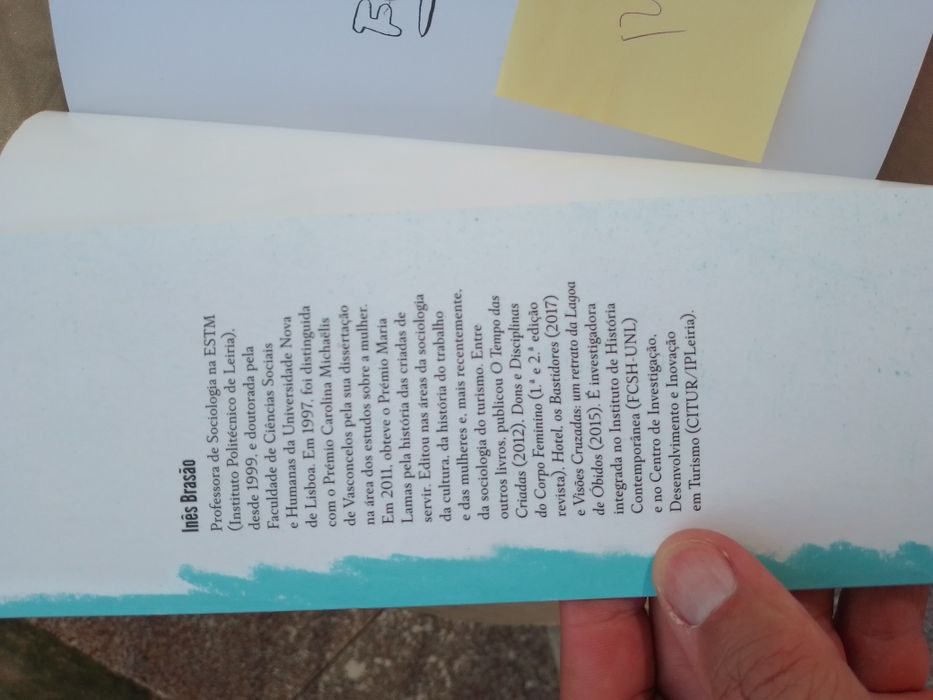 Inês Brasão
Professora de Sociologia na ESTM
(Instituto Politécnico de Leiria),
desde 1999, e doutorada pela
Faculdade de Ciências Sociais
e Humanas da Universidade Nova
de Lisboa. Em 1997, foi distinguida
com o Prémio Carolina Michaëlis
de Vasconcelos pela sua dissertação
na área dos estudos sobre a mulher.
Em 2011, obteve o Prémio Maria
Lamas pela história das criadas de
servir. Editou nas áreas da sociologia
da cultura, da história do trabalho
e das mulheres e, mais recentemente,
da sociologia do turismo. Entre
outros livros, publicou O Tempo das
Criadas (2012), Dons e Disciplinas
do Corpo Feminino (1.ª e 2.ª edição
revista), Hotel, os Bastidores (2017)
e Visões Cruzadas: um retrato da Lagoa
de Óbidos (2015). É investigadora
integrada no Instituto de História
Contemporânea (FCSH-UNL)
e no Centro de Investigação,
Desenvolvimento e Inovação
em Turismo (CITUR/IPLeiria).